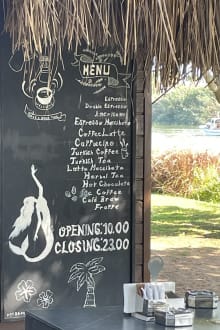 MENU
Espresso
Double Espresso
Americano
Espresso Macchiato
Coffee Latte
Cappuccino
Turkish Coffee
Turkish Tea
Latte Macchiato
Herbal Tea
Hot Chocolate
Ice Coffee
Cold Brew
Frappe
OPENING:10.00
CLOSING:23.00